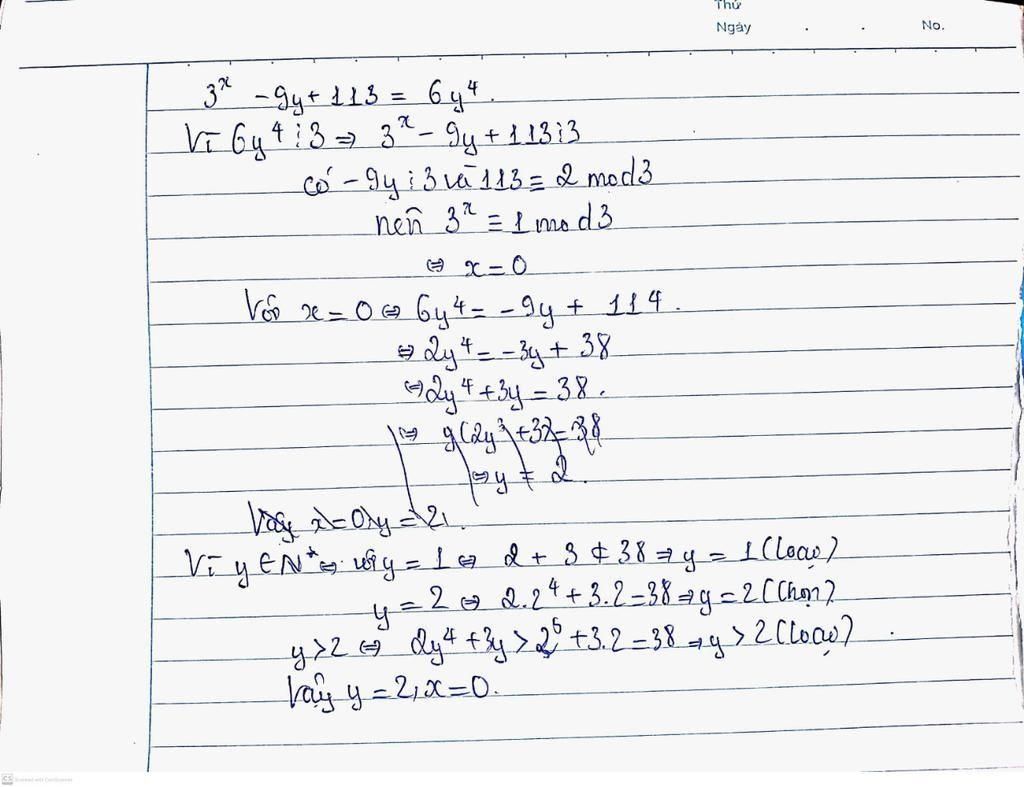 Thứ
Ngày . . No.
3^x - 9y + 113 = 6y^4.
Vì 6y^4 ⋮ 3 ⇒ 3^x - 9y + 113 ⋮ 3
có - 9y ⋮ 3 và 113 ≡ 2 mod 3
nên 3^x ≡ 1 mod 3
⇔ x = 0
Với x = 0 ⇔ 6y^4 = - 9y + 114.
⇔ 2y^4 = -3y + 38
⇔ 2y^4 + 3y = 38.
⇔ y(2y^3 + 3) = 38
⇔ y = 2.
Vậy x = 0, y = 2,.
Vì y ∈ N* ⇔ với y = 1 ⇔ 2 + 3 ≠ 38 ⇒ y = 1 (loại)
y = 2 ⇔ 2.2^4 + 3.2 = 38 ⇒ y = 2 (Chọn)
y > 2 ⇔ 2y^4 + 3y > 2^5 + 3.2 = 38 ⇒ y > 2 (loại) .
Vậy y = 2, x = 0.
CS Scanned with CamScanner